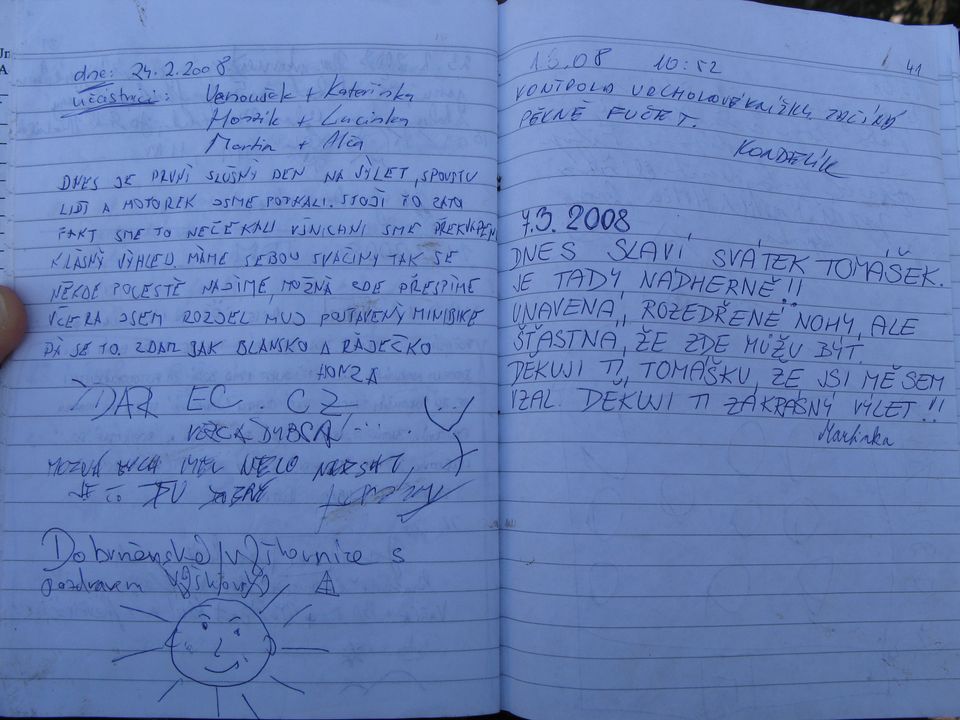 dne: 24.2.2008
účastníci: Vanoušek + Kateřinka
Honzík + Lucinka
Martin + Alča
DNES JE PRVNÍ SLUŠNÝ DEN NA VÝLET, SPOUSTU
LIDÍ A MOTOREK JSME POTKALI. STOJÍ TO ZATO
FAKT SME TO NEČEKALI VŠNICHNI SME PŘEKVAPENI
KLÁSNÝ VÝHLED. MÁME SEBOU SVAČINY TAK SE
NĚKDE POCESTĚ NAJÍME, MOŽNÁ ZDE PŘESPÍME
VČERA JSEM ROZJEL MUJ POSTAVENÝ MINIBIKE
DÁ SE TO. ZDAR JAK BLANSKO A RÁJEČKO
HONZA
ŽDAR EC. CZ
MOZNÁ BYCH MEL NECO NAPSAT,
JE TU DOBRE
s
pozdravem
16.08 10:52 41
KONTROLA VRCHOLOVÉ KNÍŽKY. ZAČÍNÁ
PĚKNĚ FUČET.
KONDELÍK
7.3. 2008
DNES SLAVÍ SVÁTEK TOMÁŠEK.
JE TADY NÁDHERNĚ!!
UNAVENÁ, ROZEDŘENÉ NOHY, ALE
ŠŤASTNÁ, ŽE ZDE MŮŽU BÝT.
DĚKUJI TI, TOMÁŠKU, ŽE JSI MĚ SEM
VZAL. DĚKUJI TI ZA KRÁSNÝ VÝLET!!
Martinka